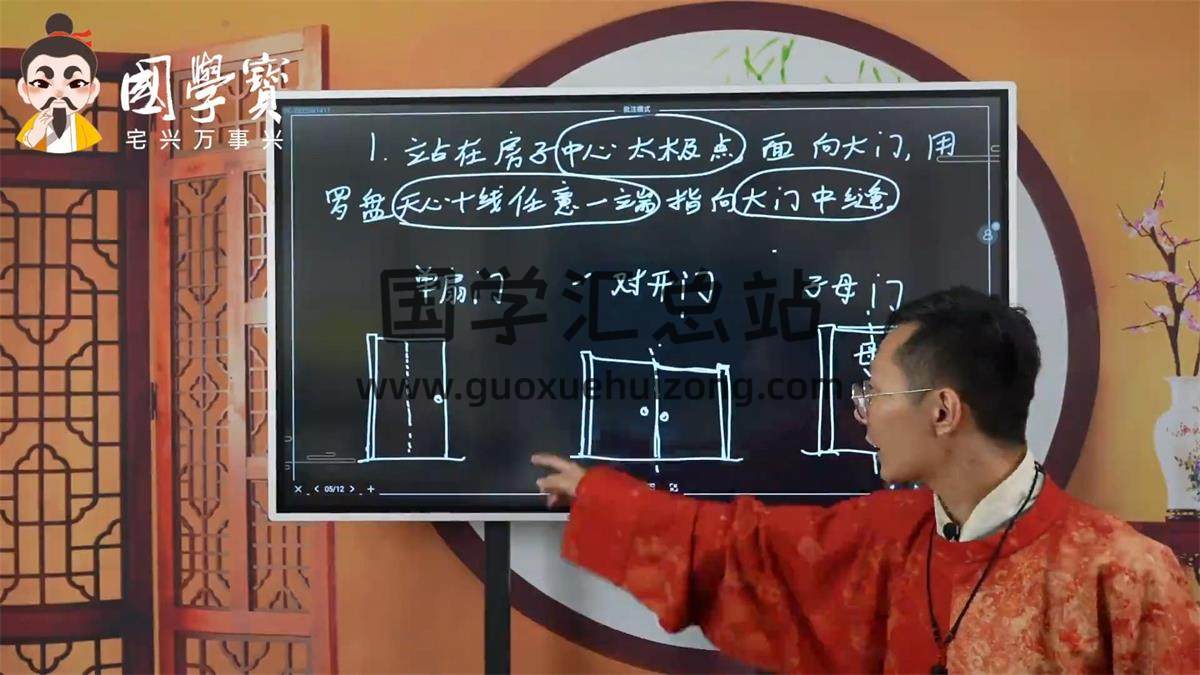 國學寶
宅兴万事兴
批注模式
1. 站在房子中心太极点 面向大门, 用
罗盘天心十线任意一端指向大门中缝
单扇门 对开门 子母门
母
国学汇总站
www.guoxuehuizong.com
05/12